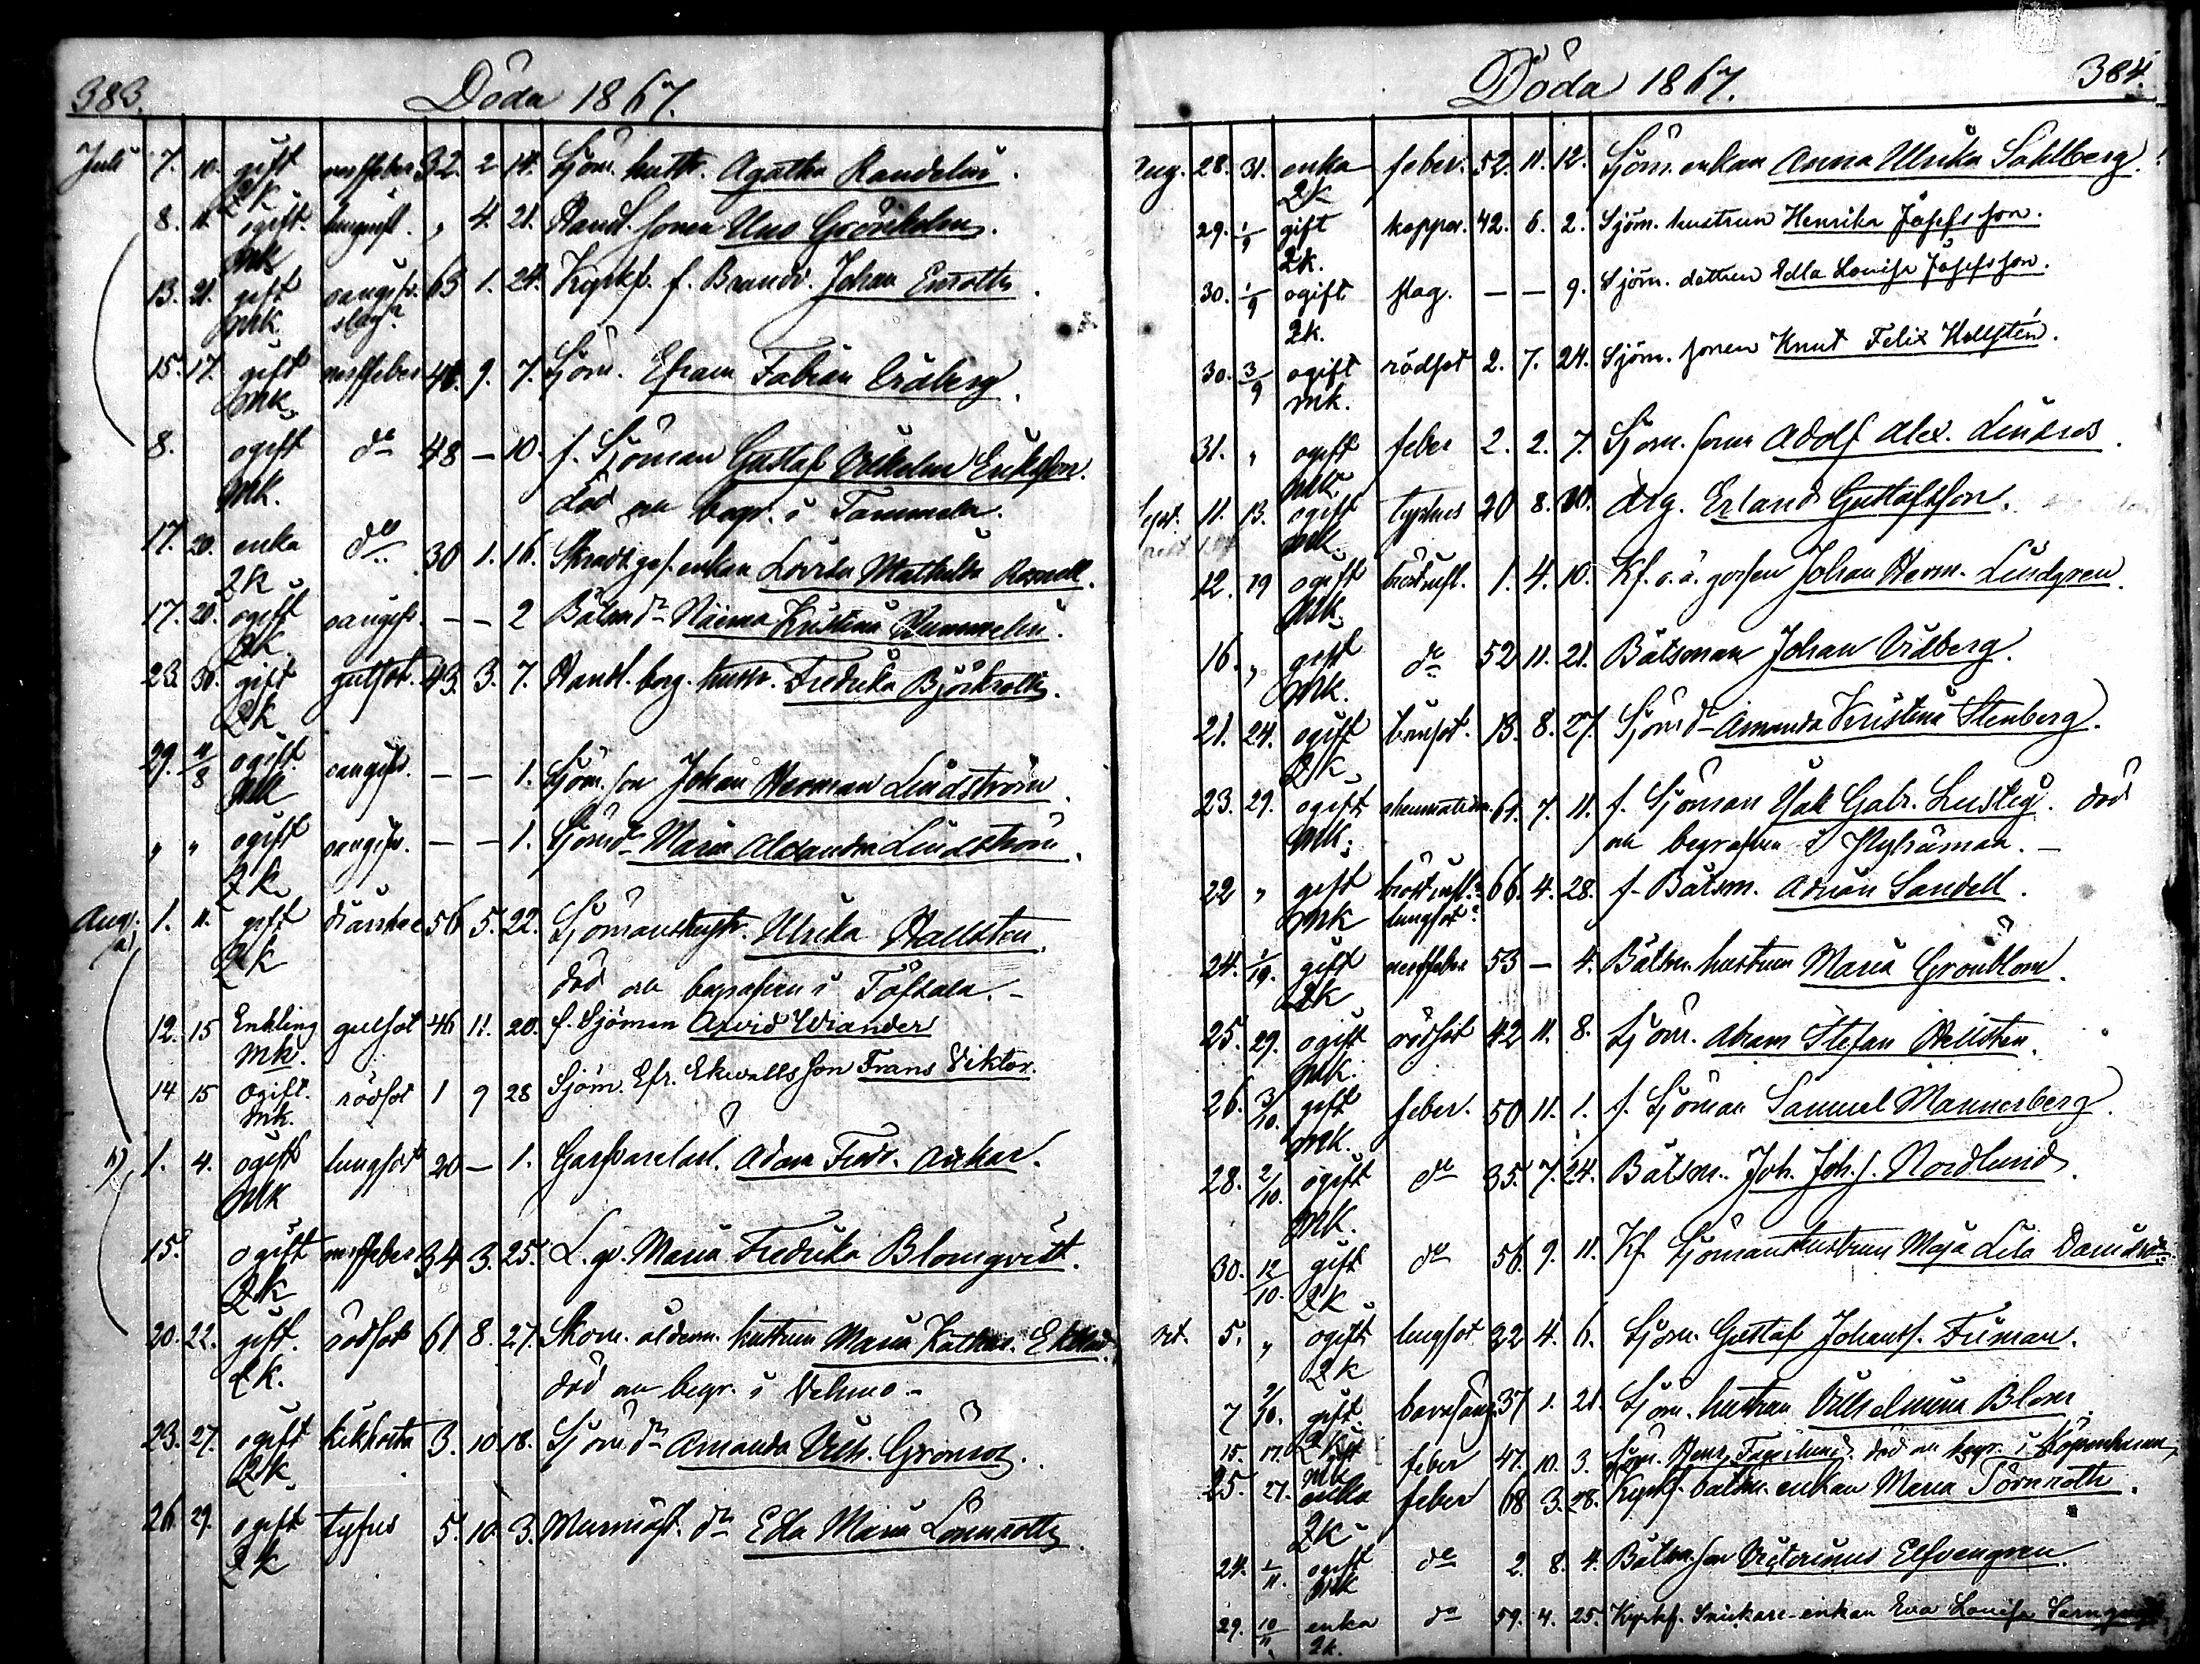 383.
Döda 1867.
Juli 7. 10. gift nerffeber 32. 2 14. Sjöm. hustr. Agatha Randelin.
2k
8. 11. ogift. 4. 21. Handl. sonen Uno Grönholm.
mk
13. 21. gift oangifv. 63 1. 24. Kyrkf. f. Brandv. Johan Enroth.
mk. slag?
15. 17. gift nerffeber 48. 9. 7. Sjöm. Efraim Fabian
mk.
8. ogift do 48 — 10. f. Sjöman Gustaf Vilhelm Eriksson.
mk. död och begr. i Tammela.
17. 20. enka do 30 1. 16. enkan Lovisa Mathilda
2k
17. 20. ogift oangifv. — — 2 Båtsm dr Naima Kristina
2k.
23. 30. gift gulsot. 43. 3. 7. Handl. borg. hustr. Fredrika Björkroth.
2k
29. 4/8 ogift oangifv. — — 1. Sjöm. son Johan Herman Lindström.
mk
„ „ ogift oangifv. — — 1. Sjöm dr Maria Alexandra Lindström.
2k.
Aug. 1. 11. gift diarrhee 56 5. 22. Sjömanshustr. Ulrika Hallsten.
a) 2k död och begrafven i Töfsala. —
12. 15 Enkling gulsot 46 11. 20. f. Sjöman Arvid Wiander
mk.
14 15 Ogift. rödsot 1 9 28 Sjöm. Efr. Ekwalls son Frans Viktor.
mk.
b) 1. 4. ogift lungsot 20 — 1. Garfvarelärl. Adam Fredr. Ankar.
mk
15. ogift nerffeber 34 3. 25. L. qv. Maria Fredrika Blomqvist.
2k
20. 22. gift. rödsot 61 8. 27. Skom. ålderm. hustrun Maria Kathar.
2k. död och begr. i Vehmo —
23. 27. ogift kikhosta 3. 10 18. Sjöm dr Amanda Vilh. Grönros.
2k
26 29. ogift tyfus 5. 10. 3. dr Edla Maria Lönnroth.
2k
Döda 1867.
384.
Aug. 28. 31. enka feber. 52. 11. 12. Sjöm. enkan Anna Ulrika Sahlberg.
2k
29. 1/9 gift koppor. 42. 6. 2. Sjöm. hustrun Henrika Josefsson.
2k.
30. 1/9 ogift slag. — — 9. Sjöm. dottren Edla Lovisa Josefsson.
2k.
30. 3/9 ogift rödsot 2. 7. 24. Sjöm. sonen Knut Felix Hellstén.
mk.
31. „ ogift feber 2. 2. 7. Sjöm. sonen Adolf Alex. Lindros.
mk.
Sept. 11. 13. ogift typhus 20 8. 30. drg. Erland Gustafsson.
mk.
12. 19 ogift bröstinfl. 1. 4. 10. Kf. Johan Herm. Lindgren.
mk.
16. „ gift do 52 11. 21. Båtsman Johan Vidberg.
mk.
21. 24. ogift 13. 8. 27. Sjöm dr Amanda Kristina Stenberg.
2k
23. 29. ogift rheumatism. 61. 7. 11. f. Sjöman Isak Gabr. Lustig. död
mk. och begrafven i Hvitisman. —
22 „ gift bröstinfl. 66. 4. 28. f. Båtsm. Adrian Sandell.
mk lungsot?
24. 1/10. gift nerffeber 53 — 4. Båtsm. hustrun Maria Grönblom.
2k
25. 29. ogift rödsot 42 11. 8. Sjöm. Abram Stefan Hellsten.
mk.
26. 3/10. gift feber. 50 11. 1. f. Sjöman Samuel Mannerberg.
mk.
28. 2/10. ogift do 35. 7. 24. Båtsm. Joh. Joh. s. Nordlund.
mk.
30. 12/10. gift do 56. 9. 11. Kf Sjömanshustrun Maja Lisa
2k
Oct. 5. „ ogift lungsot 32 4. 6. Sjöm. Gustaf Johanss. Friman.
2k
7 2/10. gift. barnsäng 37 1. 21. Sjöm. hustrun Vilhelmina Blom.
2k
15. 17. gift feber 47. 10. 3. Sjöm. Henr. Fagerlund. död och begr. i Köpenhamn
mk
25. 27. enka feber 68 3. 28. Kyrkf. båtsm. enkan Maria Törnroth.
2k
24. 1/11. ogift do 2. 8. 4. Båtsm. son Victorinus Elfvengren.
mk
29. 10/11 enka do 59. 4. 25. Kyrkf. Snickare-enkan Eva Lovisa
2k.